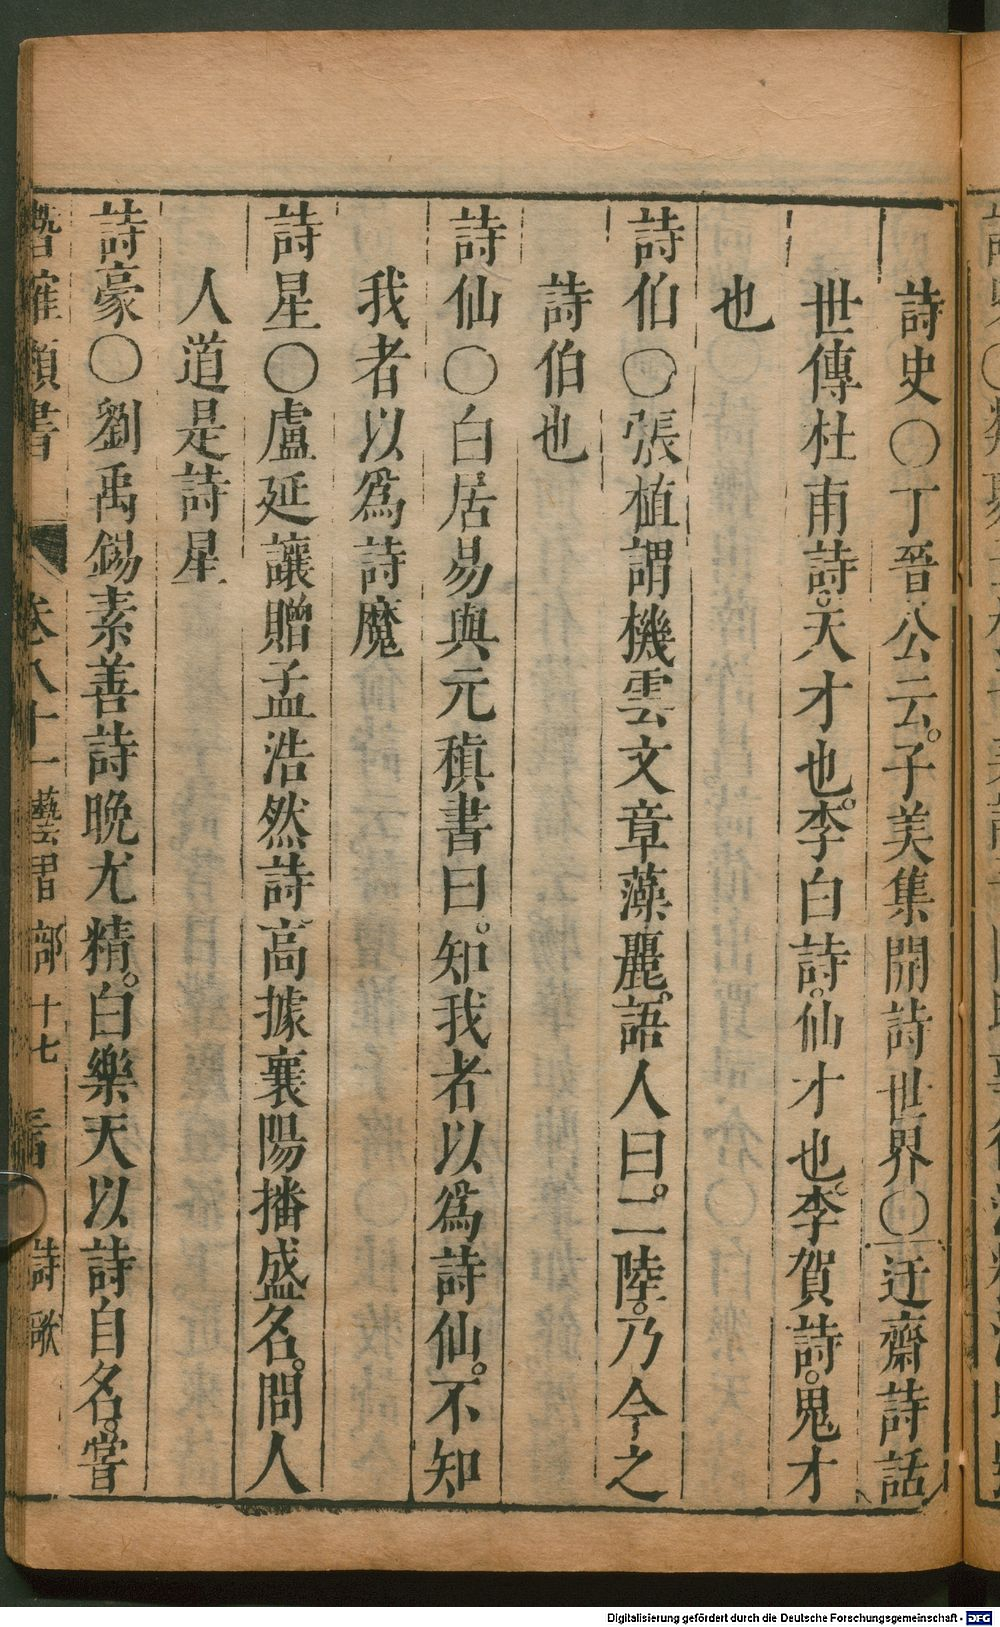 詩史〇丁晉公云。子美集開詩世界〇迂齋詩話
世傳杜甫詩。天才也。李白詩。仙才也。李賀詩。鬼才
也
詩伯〇張植謂機雲文章藻麗。語人曰。二陸。乃今之
詩伯也
詩仙〇白居易與元稹書曰。知我者以爲詩仙。不知
我者以爲詩魔
詩星〇盧延讓贈孟浩然詩高據襄陽播盛名。問人
人道是詩星
詩豪〇劉禹錫素善詩晚尤精。白樂天以詩自名。嘗
類書 卷八十一 藝習部 十七 詩歌
Digitalisierung gefördert durch die Deutsche Forschungsgemeinschaft - DFG